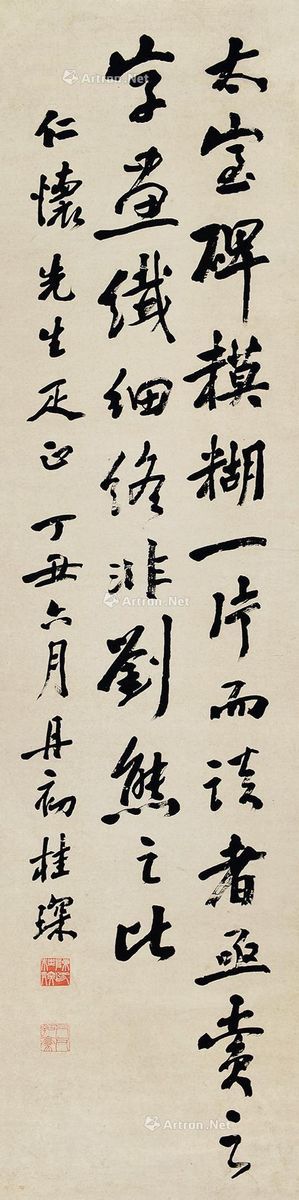 太室碑模糊一片而談者亟賣之
字畫纖細終非劉熊之比
仁懷先生疋正 丁丑六月丹初桂琛
Artron.Net
Artron.Net
Artron.Net
Artron.Net